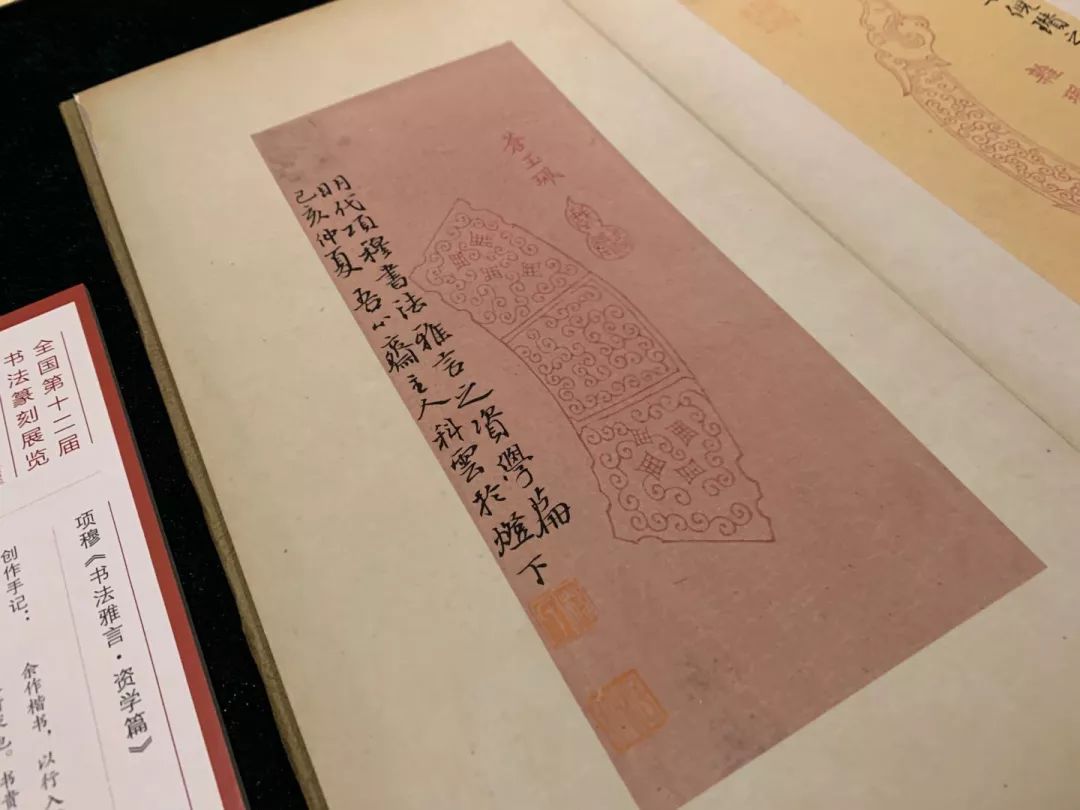 蒼玉珮
明代項穆書法雅言之資學篇
己亥仲夏吾心齋主人科雲於燈下
全国第十二届
书法篆刻展览
项穆《书法雅言·资学篇》
创作手记：
余作楷书，以行入